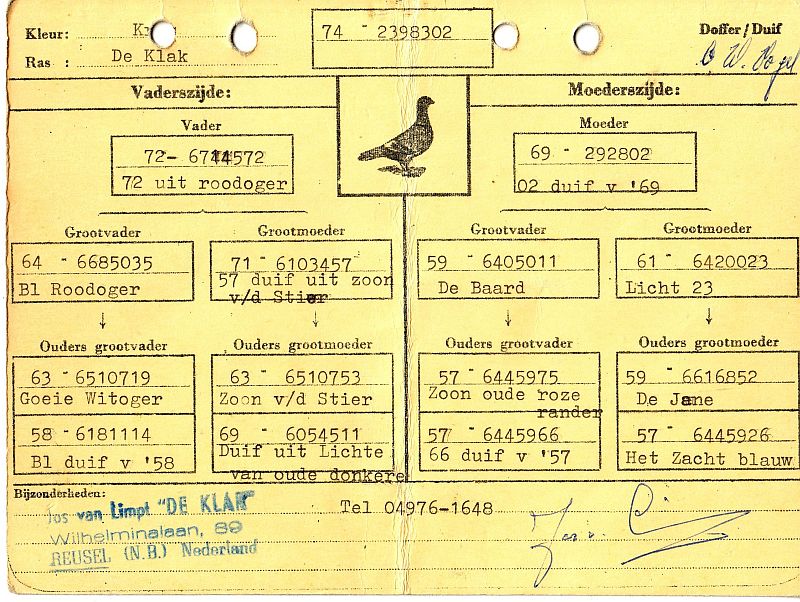 Kleur:
74 - 2398302
Doffer / Duif
Ras : De Klak
Vaderszijde:
Moederszijde:
Vader
Moeder
72- 6744572
72 uit roodoger
69 - 292802
02 duif v '69
Grootvader
Grootmoeder
Grootvader
Grootmoeder
64 - 6685035
Bl Roodoger
71 - 6103457
57 duif uit zoon
v/d Stier
59 - 6405011
De Baard
61 - 6420023
Licht 23
Ouders grootvader
Ouders grootmoeder
Ouders grootvader
Ouders grootmoeder
63 - 6510719
Goeie Witoger
63 - 6510753
Zoon v/d Stier
57 - 6445975
Zoon oude roze
rander
59 - 6616852
De Jane
58 - 6181114
Bl duif v '58
69 - 6054511
Duif uit Lichte
van oude donkere
57 - 6445966
66 duif v '57
57 - 6445926
Het Zacht blauw
Bijzonderheden:
Jos van Limpt "DE KLAK"
Wilhelminalaan, 89
REUSEL (N.B.) Nederland
Tel 04976-1648